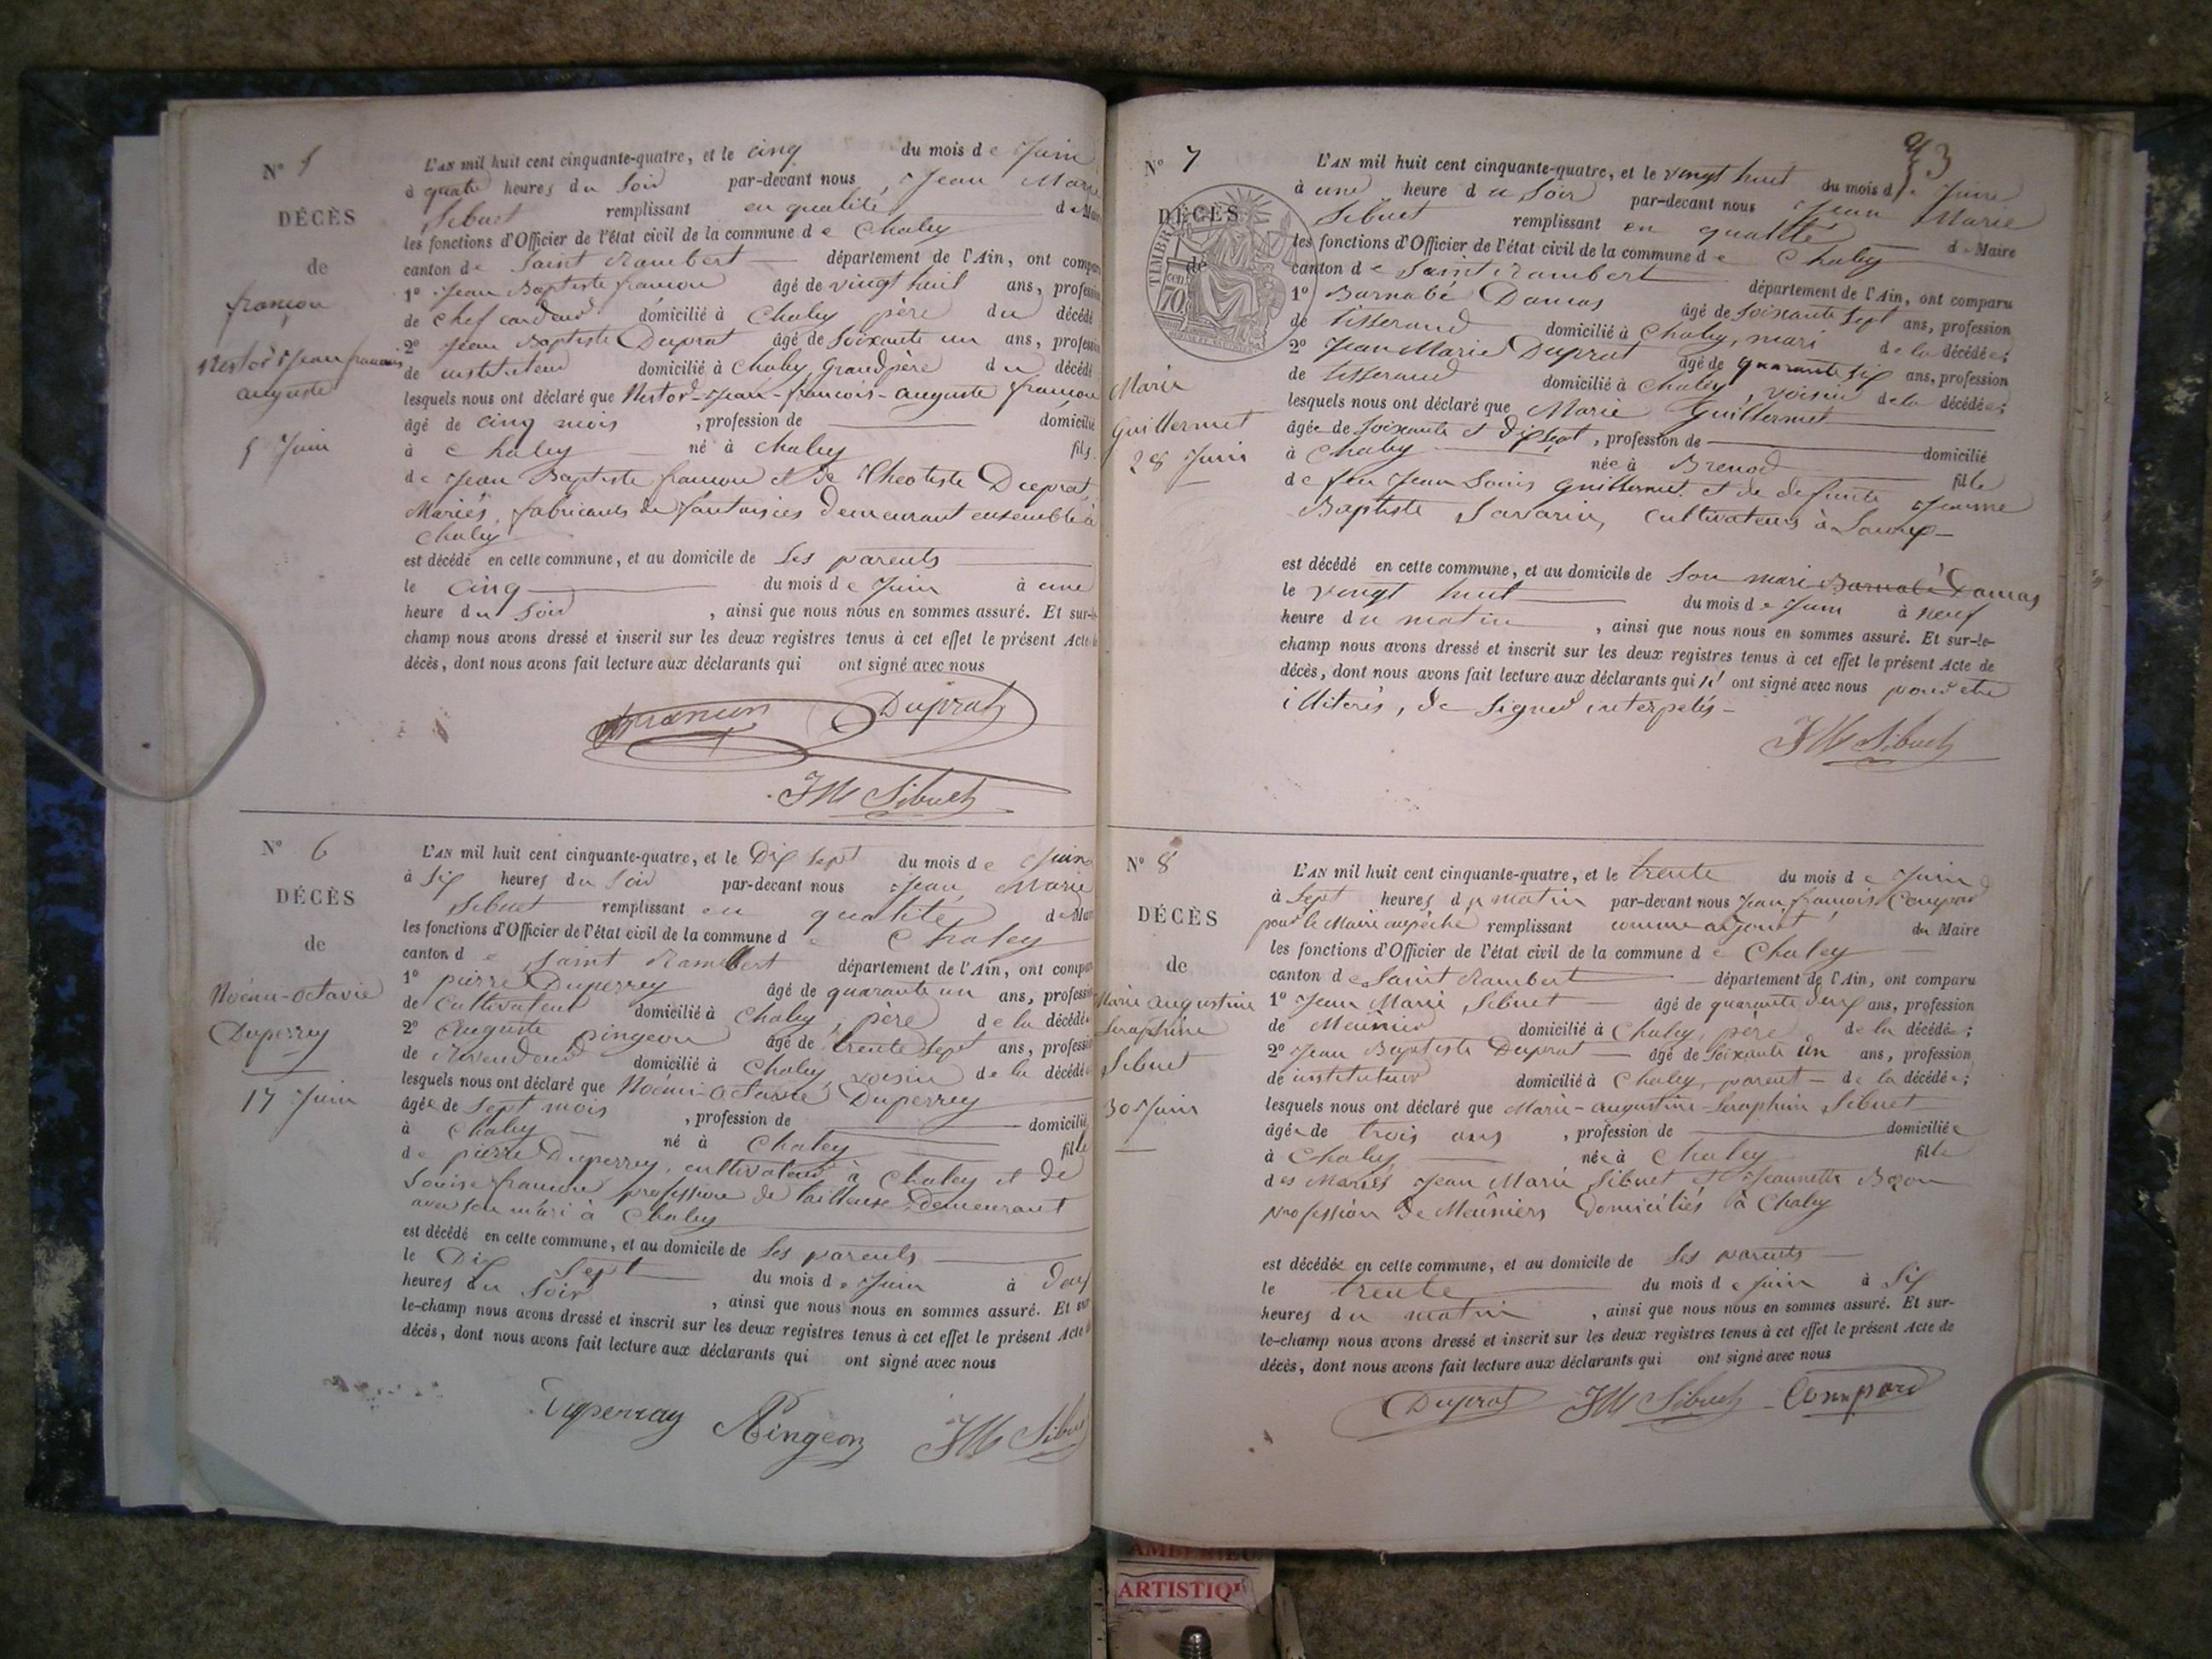 N° 5
DÉCÈS
de
françon
Nestor Jean françois
auguste
5 Juin
L'AN mil huit cent cinquante-quatre, et le cinq du mois de Juin
à quatre heures du Soir par-devant nous, Jean Marie
Sibuet remplissant en qualité de Maire
les fonctions d'Officier de l'état civil de la commune de Chaley
canton de Saint Rambert département de l'Ain, ont comparu
1° Jean Baptiste françon âgé de vingt huit ans, profession
de chef cardeur domicilié à Chaley père du décédé
2° Jean Baptiste Duprat âgé de Soixante un ans, profession
de instituteur domicilié à Chaley, Grand père du décédé
lesquels nous ont déclaré que Nestor-Jean-françois-auguste françon
âgé de cinq mois, profession de domicilié
à Chaley né à Chaley fils
de Jean Baptiste françon et de Théotiste Duprat,
Mariés, fabricants de fantaisies demeurant ensemble à
Chaley
est décédé en cette commune, et au domicile de Ses parents
le cinq du mois de Juin à une
heure du Soir, ainsi que nous nous en sommes assuré. Et sur-le-
champ nous avons dressé et inscrit sur les deux registres tenus à cet effet le présent Acte de
décès, dont nous avons fait lecture aux déclarants qui ont signé avec nous
françon Duprat
JM Sibuet
N° 6
DÉCÈS
de
Noémi-Octavie
Duperrey
17 Juin
L'AN mil huit cent cinquante-quatre, et le Dix Sept du mois de Juin
à Six heures du Soir par-devant nous Jean Marie
Sibuet remplissant en qualité de Maire
les fonctions d'Officier de l'état civil de la commune de Chaley
canton de Saint Rambert département de l'Ain, ont comparu
1° pierre Duperrey âgé de quarante un ans, profession
de Cultivateur domicilié à Chaley, père de la décédée
2° Auguste pingeon âgé de trente Sept ans, profession
de Revendeur domicilié à Chaley voisin de la décédée
lesquels nous ont déclaré que Noémi-Octavie Duperrey
âgée de Sept mois, profession de domicilié
à Chaley né à Chaley fille
de pierre Duperrey, cultivateur à Chaley et de
Louise françon profession de tailleuse, Demeurant
avec son mari à Chaley
est décédé en cette commune, et au domicile de Ses parents
le Dix Sept du mois de Juin à deux
heures du Soir, ainsi que nous nous en sommes assuré. Et sur
le-champ nous avons dressé et inscrit sur les deux registres tenus à cet effet le présent Acte de
décès, dont nous avons fait lecture aux déclarants qui ont signé avec nous
Duperray Pingeon JM Sibuet
43
N° 7
DÉCÈS
de
TIMBRE
cen
70
Marie
Guillermet
28 Juin
L'AN mil huit cent cinquante-quatre, et le vingt huit du mois de Juin
à une heure du Soir par-devant nous Jean Marie
Sibuet remplissant en qualité de Maire
les fonctions d'Officier de l'état civil de la commune de Chaley
canton de Saint Rambert département de l'Ain, ont comparu
1° Barnabé Damas âgé de Soixante Sept ans, profession
de tisserand domicilié à Chaley, mari de la décédée;
2° Jean Marie Duprat âgé de quarante Six ans, profession
de tisserand domicilié à Chaley, voisin de la décédée;
lesquels nous ont déclaré que Marie Guillermet
âgée de Soixante et dix Sept, profession de domicilié
à Chaley née à Brenod fille
de feu Jean Louis Guillermet et de defunte Jeanne
Baptiste Savarin, cultivateurs à
est décédé en cette commune, et au domicile de Son mari Barnabé Damas
le vingt huit du mois de Juin à neuf
heure du matin, ainsi que nous nous en sommes assuré. Et sur-le-
champ nous avons dressé et inscrit sur les deux registres tenus à cet effet le présent Acte de
décès, dont nous avons fait lecture aux déclarants qui n' ont signé avec nous pour être
illitérés, de Signer interpelés
JM Sibuet
N° 8
DÉCÈS
de
Marie augustine
Seraphine
Sibuet
30 Juin
L'AN mil huit cent cinquante-quatre, et le trente du mois de Juin
à Sept heures du matin par-devant nous Jean françois Compard
pour le Maire empêché remplissant comme adjoint du Maire
les fonctions d'Officier de l'état civil de la commune de Chaley
canton de Saint Rambert département de l'Ain, ont comparu
1° Jean Marie Sibuet âgé de quarante deux ans, profession
de Meunier domicilié à Chaley, père de la décédée;
2° Jean Baptiste Duprat âgé de Soixante un ans, profession
de instituteur domicilié à Chaley, parent de la décédée;
lesquels nous ont déclaré que Marie-augustine-Seraphine Sibuet
âgée de trois ans, profession de domiciliée
à Chaley née à Chaley fille
des Mariés Jean Marie Sibuet et Jeannette Bozon
profession de Meûniers Domiciliés à Chaley
est décédée en cette commune, et au domicile de Ses parents
le trente du mois de Juin à Six
heures du matin, ainsi que nous nous en sommes assuré. Et sur-
le-champ nous avons dressé et inscrit sur les deux registres tenus à cet effet le présent Acte de
décès, dont nous avons fait lecture aux déclarants qui ont signé avec nous
Duprat JM Sibuet Compard
AMBÉRIEU
ARTISTIQU